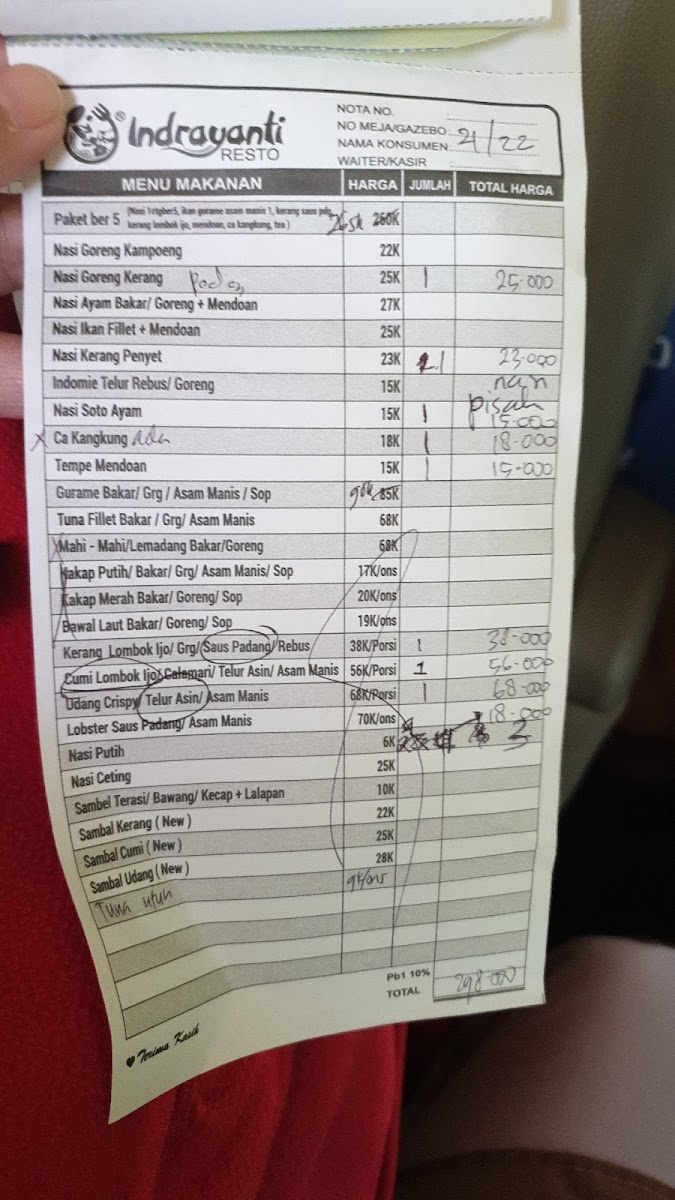 Indrayanti ®
RESTO
NOTA NO.
NO MEJA/GAZEBO: 21/22
NAMA KONSUMEN:
WAITER/KASIR
MENU MAKANAN HARGA JUMLAH TOTAL HARGA
Paket ber 5 265k 260K
Nasi Goreng Kampoeng 22K
Nasi Goreng Kerang 25K 1 25.000
Nasi Ayam Bakar/ Goreng + Mendoan 27K
Nasi Ikan Fillet + Mendoan 25K
Nasi Kerang Penyet 23K 1 23.000
Indomie Telur Rebus/ Goreng 15K
Nasi Soto Ayam 15K 1 pisah 15.000
x Ca Kangkung 18K 1 18.000
Tempe Mendoan 15K 1 15.000
Gurame Bakar/ Grg / Asam Manis / Sop 90k 85K
Tuna Fillet Bakar / Grg/ Asam Manis 68K
Mahi - Mahi/Lemadang Bakar/Goreng 68K
Kakap Putih/ Bakar/ Grg/ Asam Manis/ Sop 17K/ons
Kakap Merah Bakar/ Goreng/ Sop 20K/ons
Bawal Laut Bakar/ Goreng/ Sop 19K/ons
Kerang Lombok Ijo/ Grg/ Saus Padang/ Rebus 38K/Porsi 1 38.000
Cumi Lombok Ijo/ Calamari/ Telur Asin/ Asam Manis 56K/Porsi 1 56.000
Udang Crispy/ Telur Asin/ Asam Manis 68K/Porsi 1 68.000
Lobster Saus Padang/ Asam Manis 70K/ons 18.000
Nasi Putih 6K 3
Nasi Ceting 25K
Sambel Terasi/ Bawang/ Kecap + Lalapan 10K
Sambal Kerang ( New ) 22K
Sambal Cumi ( New ) 25K
Sambal Udang ( New ) 28K
Tuna utuh 9k/ons
Pb1 10%
TOTAL 298.000
Terima Kasih